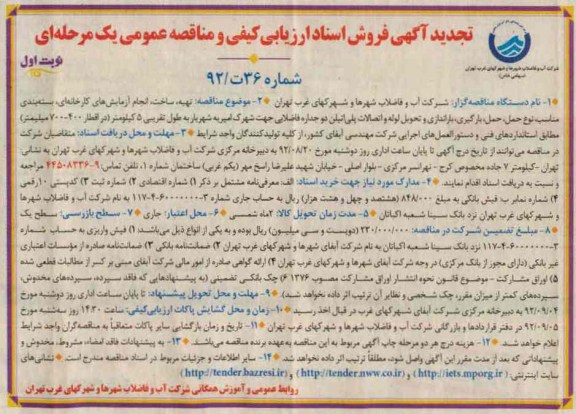 تجدید آگهی فروش اسناد ارزیابی کیفی و مناقصه عمومی یک مرحله‌ای
نوبت اول
شماره ۳۶ت/۹۲
شرکت آب و فاضلاب شهرها و شهرکهای غرب تهران
(سهامی خاص)
۱- نام دستگاه مناقصه‌گزار: شرکت آب و فاضلاب شهرها و شهرکهای غرب تهران ۲- موضوع مناقصه: تهیه، ساخت، انجام آزمایش‌های کارخانه‌ای، بسته‌بندی
مناسب، نوع حمل، حمل، بارگیری، باراندازی و تحویل لوله و اتصالات پلی‌اتیلن دو جداره فاضلابی جهت شهرک امیریه شهریار به طول تقریبی ۵ کیلومتر (در اقطار ۴۰۰-۷۰۰ میلیمتر)
مطابق استانداردهای فنی و دستورالعمل‌های اجرایی شرکت مهندسی آبفای کشور، از کلیه تولیدکنندگان واجد شرایط ۳- مهلت و محل دریافت اسناد: متقاضیان شرکت
در مناقصه می‌توانند از تاریخ درج آگهی تا پایان ساعت اداری روز دوشنبه مورخ ۹۲/۰۸/۲۰ به دبیرخانه مرکزی شرکت آب و فاضلاب شهرها و شهرکهای غرب تهران به نشانی:
تهران -کیلومتر ۷ جاده مخصوص کرج - تهرانسر مرکزی - بلوار اصلی - خیابان شهید علیرضا راسخ مهر (یکم غربی) ساختمان شماره ۱، تلفن تماس: ۹-۴۴۵۰۸۳۳۶ مراجعه
و نسبت به دریافت اسناد اقدام نمایند. ۴- مدارک مورد نیاز جهت خرید اسناد: الف: معرفی‌نامه مشتمل بر ذکر ۱) شماره اقتصادی ۲) شماره ثبت ۳) کدپستی ۱۰ رقمی
۴) شماره نمابر ب: فیش بانکی به مبلغ ۸۴۸/۰۰۰ (هشتصد و چهل و هشت هزار) ریال به حساب جاری شماره ۳-۱۱۷۰۴۰۶۰۰۰۰۰۰ به نام شرکت آب و فاضلاب شهرها
و شهرکهای غرب تهران نزد بانک سینا شعبه اکباتان ۵- مدت زمان تحویل کالا: ۲ماه شمسی ۶- محل اعتبار: جاری ۷- سطح بازرسی: سطح یک
۸- مبلغ تضمین شرکت در مناقصه: ۲۳۰/۰۰۰/۰۰۰ (دویست و سی میلیون) ریال بوده و به یکی از انواع ذیل می‌باشند: ۱) فیش واریزی به حساب شماره
۳-۱۱۷۰۴۰۶۰۰۰۰۰۰ نزد بانک سینا شعبه اکباتان به نام شرکت آبفای شهرها و شهرکهای غرب تهران ۲) ضمانتنامه بانکی ۳) ضمانتنامه صادره از مؤسسات اعتباری
غیر بانکی (دارای مجوز از بانک مرکزی) در وجه شرکت آبفای شهرها و شهرکهای غرب تهران ۴) ارائه گواهی صادره از امور مالی شرکت آبفای مبنی بر کسر از مطالبات قطعی شده
۵) اوراق مشارکت - موضوع قانون نحوه انتشار اوراق مشارکت مصوب ۱۳۷۶ ۶) چک بانکی تضمینی (به پیشنهادهایی که فاقد سپرده، سپرده‌های مخدوش،
سپرده‌های کمتر از میزان مقرر، چک شخصی و نظایر آن ترتیب اثر داده نخواهد شد.) ۹- مهلت و محل تحویل پیشنهاد: تا پایان ساعت اداری روز دوشنبه مورخ
۹۲/۰۹/۰۴ به دبیرخانه مرکزی شرکت آبفای شهرکهای غرب تهران در قبال اخذ رسید ۱۰- زمان و محل گشایش پاکات ارزیابی کیفی: ساعت ۱۴:۳۰ روز سه‌شنبه مورخ
۹۲/۰۹/۰۵ در دفتر قراردادها و بازرگانی شرکت آب و فاضلاب شهرها و شهرکهای غرب تهران ۱۱- تاریخ و زمان بازگشایی سایر پاکات متعاقباً به مناقصه‌گران واجد شرایط
اعلام خواهد شد. ۱۲- هزینه درج هر دو مرحله چاپ آگهی مربوط به این مناقصه به عهده برنده مناقصه می‌باشد. ۱۳- به پیشنهادات فاقد امضاء، مشروط، مخدوش و
پیشنهاداتی که بعد از مدت مقرر این آگهی واصل شود، مطلقاً ترتیب اثر داده نخواهد شد. ۱۴- سایر اطلاعات و جزئیات مربوط در اسناد مناقصه مندرج است نشانی‌های
سایت اینترنتی: (http://iets.mporg.ir) و (http://tender.nww.co.ir) و (http://tender.bazresi.ir)
روابط عمومی و آموزش همگانی شرکت آب و فاضلاب شهرها و شهرکهای غرب تهران